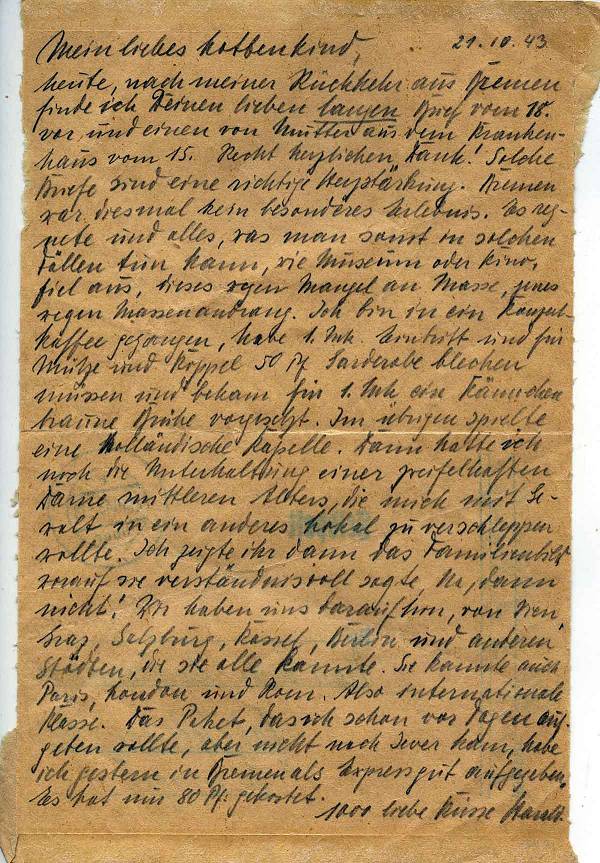 21.10.43
Mein liebes
heute, nach meiner Rückkehr aus Bremen
finde ich Deinen lieben langen Brief vom 18.
vor und einen von Mutter aus dem Kranken-
haus vom 15. Recht herzlichen Dank! Solche
Briefe sind eine richtige Herzstärkung. Bremen
war diesmal kein besonderes Erlebnis. Es reg-
nete und alles, was man sonst in solchen
Fällen tun kann, wie Museum oder Kino,
fiel aus, dieses wegen Mangel an Masse, jenes
wegen Massenandrang. Ich bin in ein Konzert-
kaffee gegangen, habe 1. Mk. Eintritt und für
Mütze und Koppel 50 Pf. Garderobe blechen
müssen und bekam für 1. Mk. eine Kännchen
braune Brühe vorgesetzt. Im übrigen spielte
eine Holländische Kapelle. Dann hatte ich
noch die Unterhaltung einer zweifelhaften
Dame mittleren Alters, die mich mit Ge-
walt in ein anderes Lokal zu verschleppen
wollte. Ich zeigte ihr dann das Familienbild
worauf sie verständnisvoll sagte, Na, dann
nicht! Wir haben uns daraufhin, von Wien,
Graz, Salzburg, Kassel, Berlin und anderen
Städten, die sie alle kannte. Sie kannte auch
Paris, London und Rom. Also internationale
Klasse. Das Paket, das ich schon vor Tagen auf-
geben wollte, aber nicht nach Jever kam, habe
ich gestern in Bremen als Expressgut aufgegeben.
Es hat nur 80 Pf. gekostet.
1000 liebe Küsse